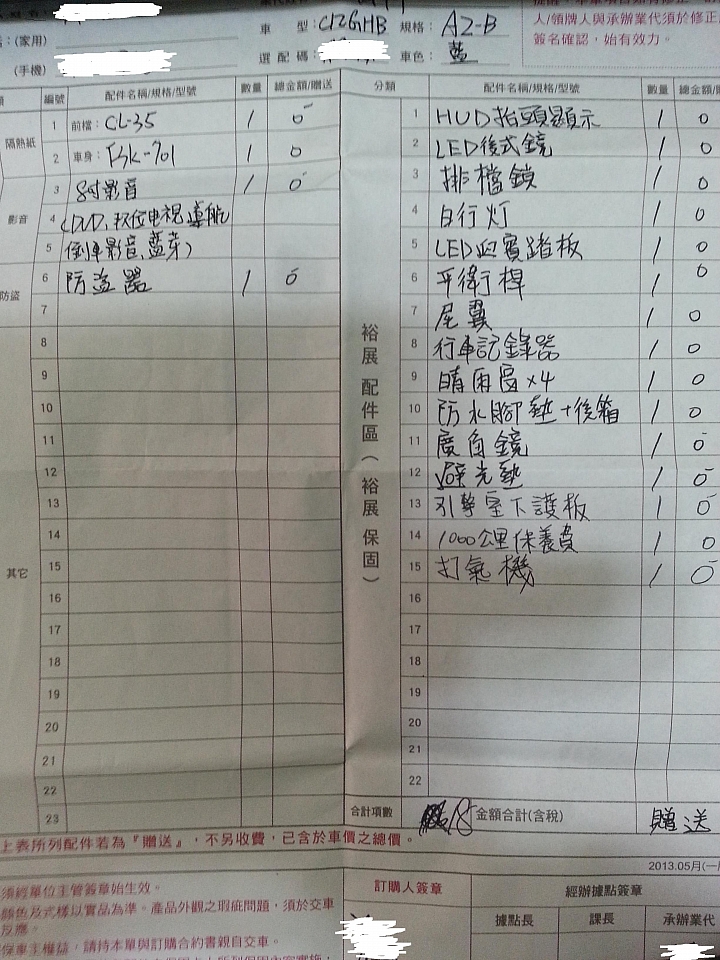 ：(家用)
(手機)
車 型：C12GHB 規格：A2-B
選 配 碼：
車色：藍
人/領牌人與承辦業代須於修正
簽名確認，始有效力。
編號 配件名稱/規格/型號 數量 總金額/贈送
隔熱紙
1 前檔：CL-35 1 0
2 車身： 1 0
影音
3 8吋影音 1 0
4 (DVD、數位电視、導航
5 倒車影音、藍芽)
防盜
6 防盜器 1 0
7
其它
8
9
10
11
12
13
14
15
16
17
18
19
20
21
22
23
裕展 配件區（裕展 保固）
分類 配件名稱/規格/型號 數量 總金額/贈
1 HUD抬頭顯示 1 0
2 LED後式鏡 1 0
3 排檔鎖 1 0
4 日行灯 1 0
5 LED迎賓踏板 1 0
6 平衡桿 1 0
7 尾翼 1 0
8 行車記錄器 1 0
9 晴雨窗x4 1 0
10 防水腳墊+後箱 1 0
11 廣角鏡 1 0
12 避光墊 1 0
13 引擎室下護板 1 0
14 1000公里保養費 1 0
15 打氣機 1 0
16
17
18
19
20
21
22
合計項數 18 金額合計(含稅) 贈送
上表所列配件若為『贈送』，不另收費，已含於車價之總價。
2013.05月(一
須經單位主管簽章始生效。
顏色及式樣以實品為準。產品外觀之瑕疵問題，須於交車
反應。
保車主權益，請持本單與訂購合約書親自交車。
訂購人簽章
經辦據點簽章
據點長 課長 承辦業代